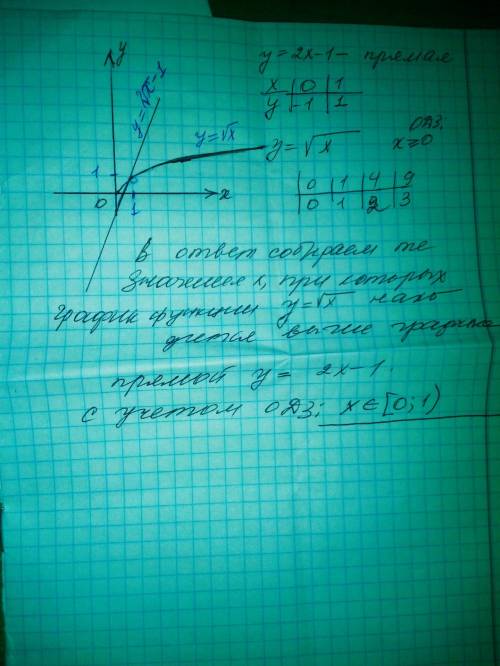 y
y = 2x - 1
y = √x
1
0
1
x
y = 2x - 1 - прямая
x | 0 | 1
y | -1 | 1
y = √x
ОДЗ:
x ≥ 0
0 | 1 | 4 | 9
0 | 1 | 2 | 3
В ответ собираем те
значения x, при которых
график функции y = √x нахо
дится выше графика
прямой y = 2x - 1.
с учетом ОДЗ: x ∈ [0; 1)